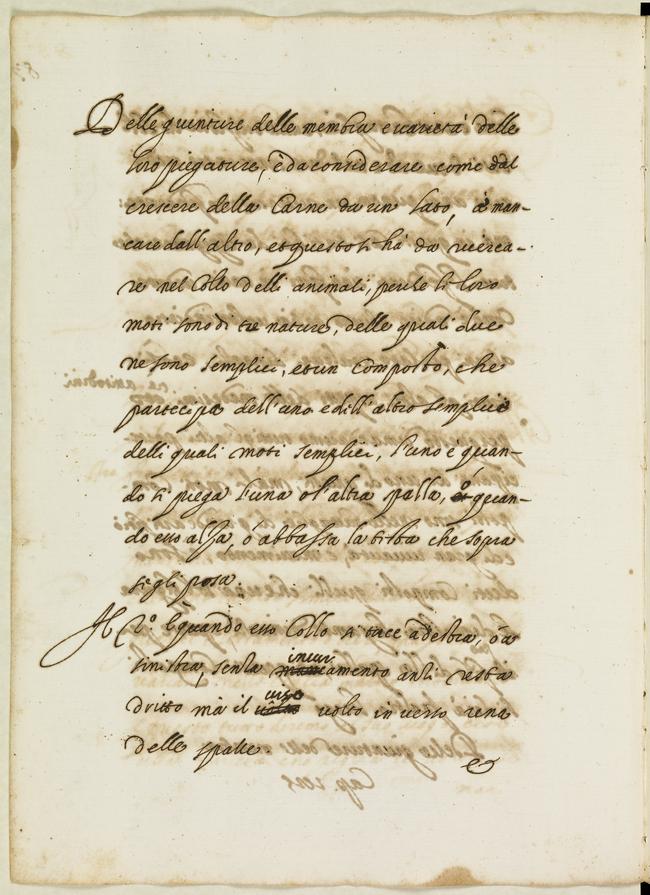 Delle giunture delle membra e varietà delle
loro piegature, è da considerare come dal
crescere della Carne da un lato, à man-
care dall'altro, et questo si hà da ricerca-
re nel Collo delli animali, perche li loro
moti sono di tre nature, delle quali due
ne sono semplici, et un Composto, che
partecipa dell'uno e dell'altro semplice
delli quali moti semplici, l'uno è quan-
do si piega l'una o l'altra spalla, ò quan-
do esso alza, ò abbassa la testa che sopra
segli posa.
Il 2.º è quando esso Collo si tace a destra, ò a
sinistra, senza incurvamento anzi resta
dritto mà il viso volto in verso una
delle spalle